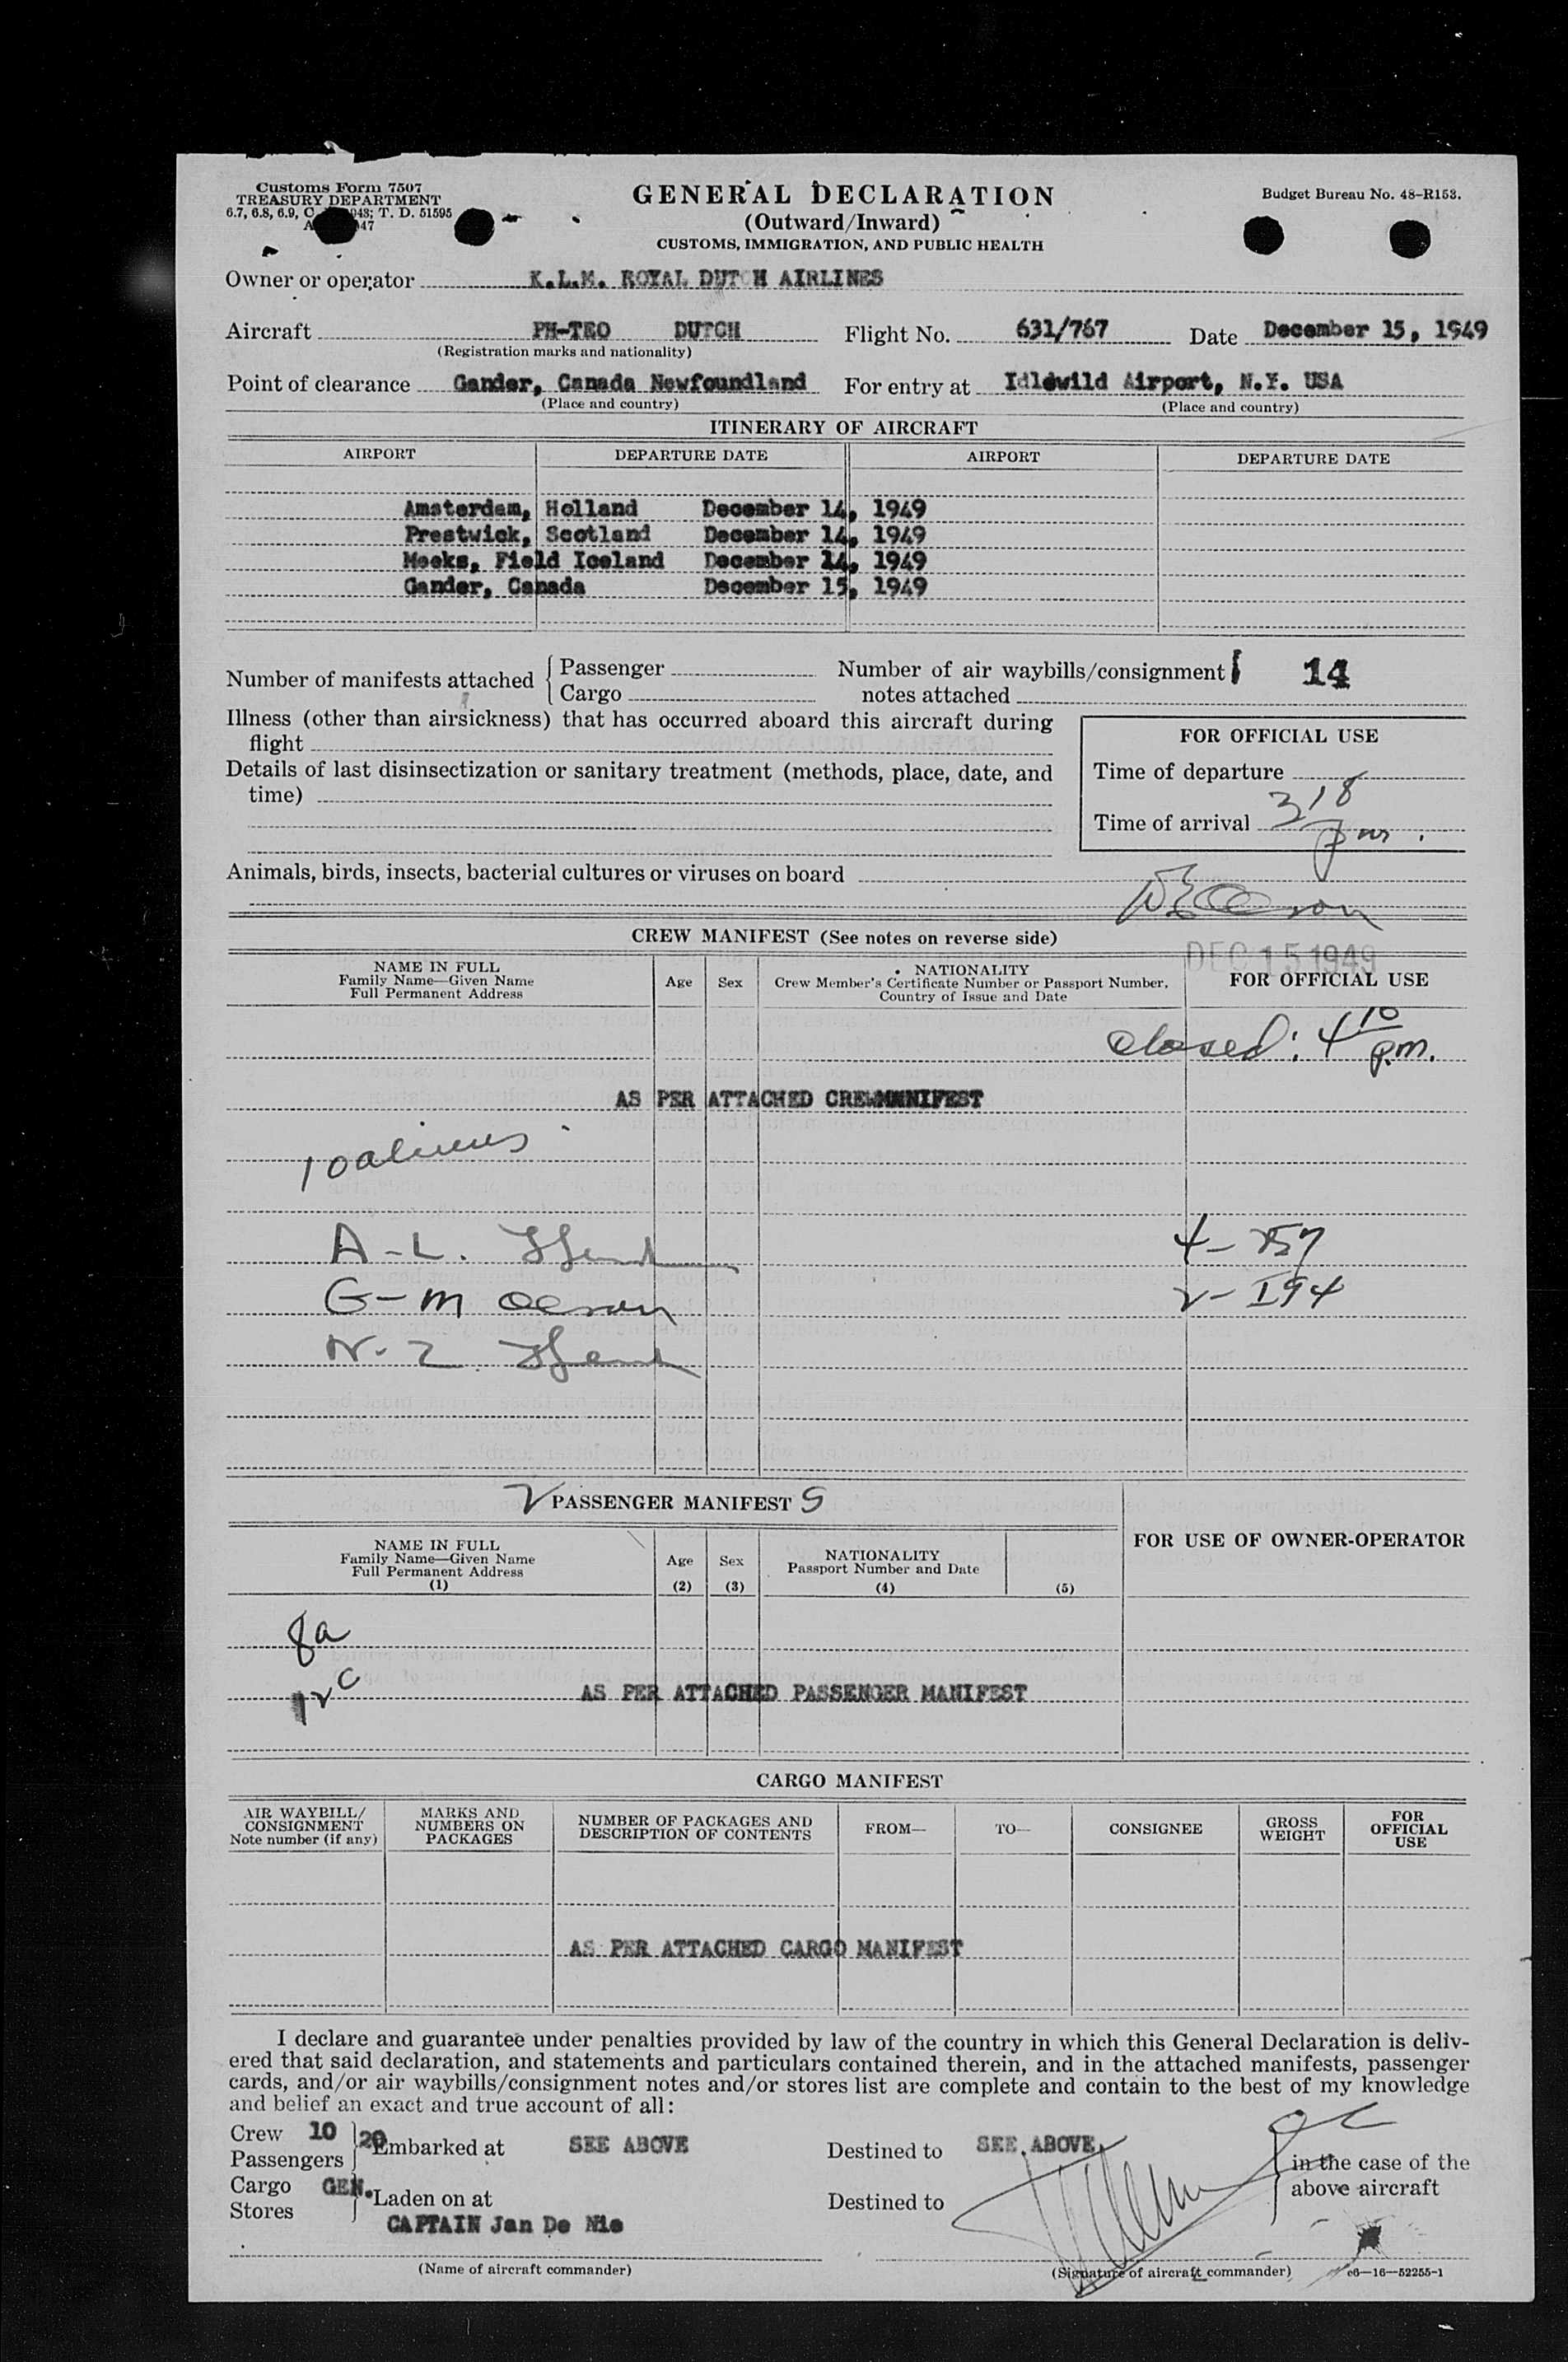 Customs Form 7507
TREASURY DEPARTMENT
6.7, 6.8, 6.9, C. 943; T. D. 51595
47
GENERAL DECLARATION
(Outward/Inward)
CUSTOMS, IMMIGRATION, AND PUBLIC HEALTH
Budget Bureau No. 48–R153.
Owner or operator K.L.M. ROYAL DUTCH AIRLINES
Aircraft PH-TEO DUTCH Flight No. 631/767 Date December 15, 1949
(Registration marks and nationality)
Point of clearance Gander, Canada Newfoundland For entry at Idlewild Airport, N.Y. USA
(Place and country) (Place and country)
ITINERARY OF AIRCRAFT
AIRPORT DEPARTURE DATE AIRPORT DEPARTURE DATE
Amsterdam, Holland December 14, 1949
Prestwick, Scotland December 14, 1949
Meeks, Field Iceland December 14, 1949
Gander, Canada December 15, 1949
Number of manifests attached { Passenger
Cargo
Number of air waybills/consignment 14
notes attached
Illness (other than airsickness) that has occurred aboard this aircraft during
flight
Details of last disinsectization or sanitary treatment (methods, place, date, and
time)
FOR OFFICIAL USE
Time of departure
Time of arrival 318 pm.
Animals, birds, insects, bacterial cultures or viruses on board
CREW MANIFEST (See notes on reverse side)
DEC 15 1949
NAME IN FULL
Family Name—Given Name
Full Permanent Address
Age
Sex
NATIONALITY
Crew Member's Certificate Number or Passport Number,
Country of Issue and Date
FOR OFFICIAL USE
Closed: 4 10 p.m.
AS PER ATTACHED CREW MANIFEST
10 aliens
A-L.
G-M
4- 757
2- I94
2 PASSENGER MANIFEST S
NAME IN FULL
Family Name—Given Name
Full Permanent Address
(1)
Age
(2)
Sex
(3)
NATIONALITY
Passport Number and Date
(4)
(5)
FOR USE OF OWNER-OPERATOR
8a
12c
AS PER ATTACHED PASSENGER MANIFEST
CARGO MANIFEST
AIR WAYBILL/
CONSIGNMENT
Note number (if any)
MARKS AND
NUMBERS ON
PACKAGES
NUMBER OF PACKAGES AND
DESCRIPTION OF CONTENTS
FROM—
TO—
CONSIGNEE
GROSS
WEIGHT
FOR
OFFICIAL
USE
AS PER ATTACHED CARGO MANIFEST
I declare and guarantee under penalties provided by law of the country in which this General Declaration is deliv-
ered that said declaration, and statements and particulars contained therein, and in the attached manifests, passenger
cards, and/or air waybills/consignment notes and/or stores list are complete and contain to the best of my knowledge
and belief an exact and true account of all:
Crew 10
Passengers 20 Embarked at SEE ABOVE Destined to SEE ABOVE
Cargo GEN.
Stores Laden on at Destined to
in the case of the
above aircraft
CAPTAIN Jan De Nie
(Name of aircraft commander) (Signature of aircraft commander) c6—16—52255-1